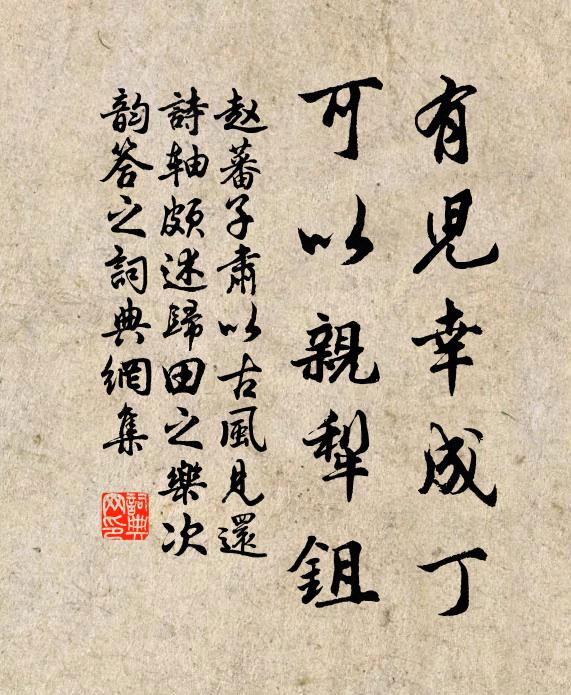 有兒幸成丁
可以親犂鉏
赵蕃子肅以古風見還
詩軸頗述歸田之樂次
韵答之詞典網集
詞典网印